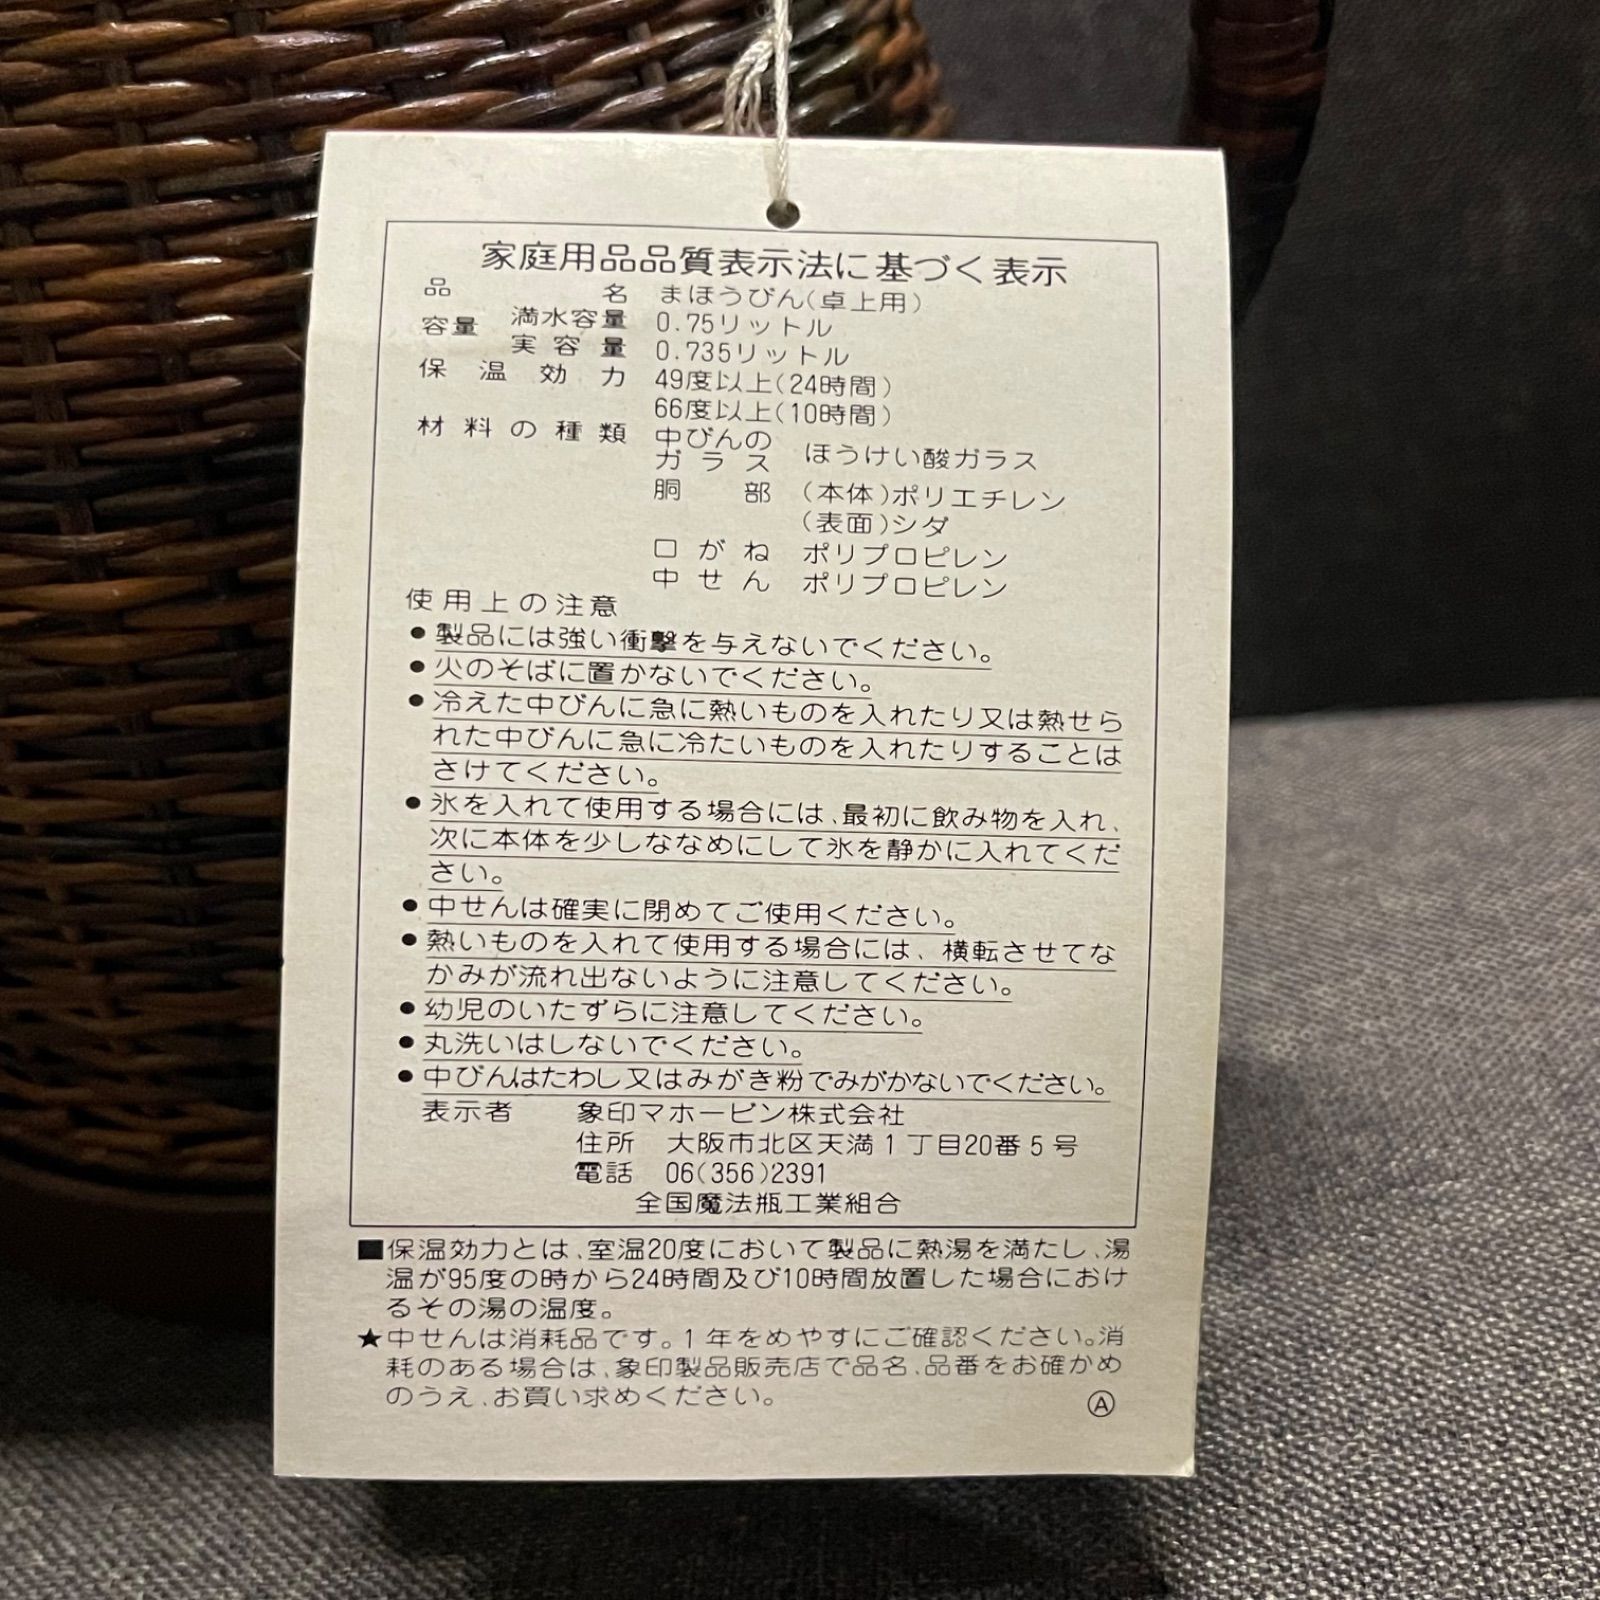 家庭用品品質表示法に基づく表示
品名 まほうびん(卓上用)
容量 満水容量 0.75リットル
実容量 0.735リットル
保温効力 49度以上(24時間)
66度以上(10時間)
材料の種類 中びんの
ガラス ほうけい酸ガラス
胴部 (本体)ポリエチレン
(表面)シダ
口がね ポリプロピレン
中せん ポリプロピレン
使用上の注意
●製品には強い衝撃を与えないでください。
●火のそばに置かないでください。
●冷えた中びんに急に熱いものを入れたり又は熱せら
れた中びんに急に冷たいものを入れたりすることは
さけてください。
●氷を入れて使用する場合には、最初に飲み物を入れ、
次に本体を少しななめにして氷を静かに入れてくだ
さい。
●中せんは確実に閉めてご使用ください。
●熱いものを入れて使用する場合には、横転させてな
かみが流れ出ないように注意してください。
●幼児のいたずらに注意してください。
●丸洗いはしないでください。
●中びんはたわし又はみがき粉でみがかないでください。
表示者 象印マホービン株式会社
住所 大阪市北区天満1丁目20番5号
電話 06(356)2391
全国魔法瓶工業組合
■保温効力とは、室温20度において製品に熱湯を満たし、湯
温が95度の時から24時間及び10時間放置した場合におけ
るその湯の温度。
★中せんは消耗品です。1年をめやすにご確認ください。消
耗のある場合は、象印製品販売店で品名、品番をお確かめ
のうえ、お買い求めください。
Ⓐ